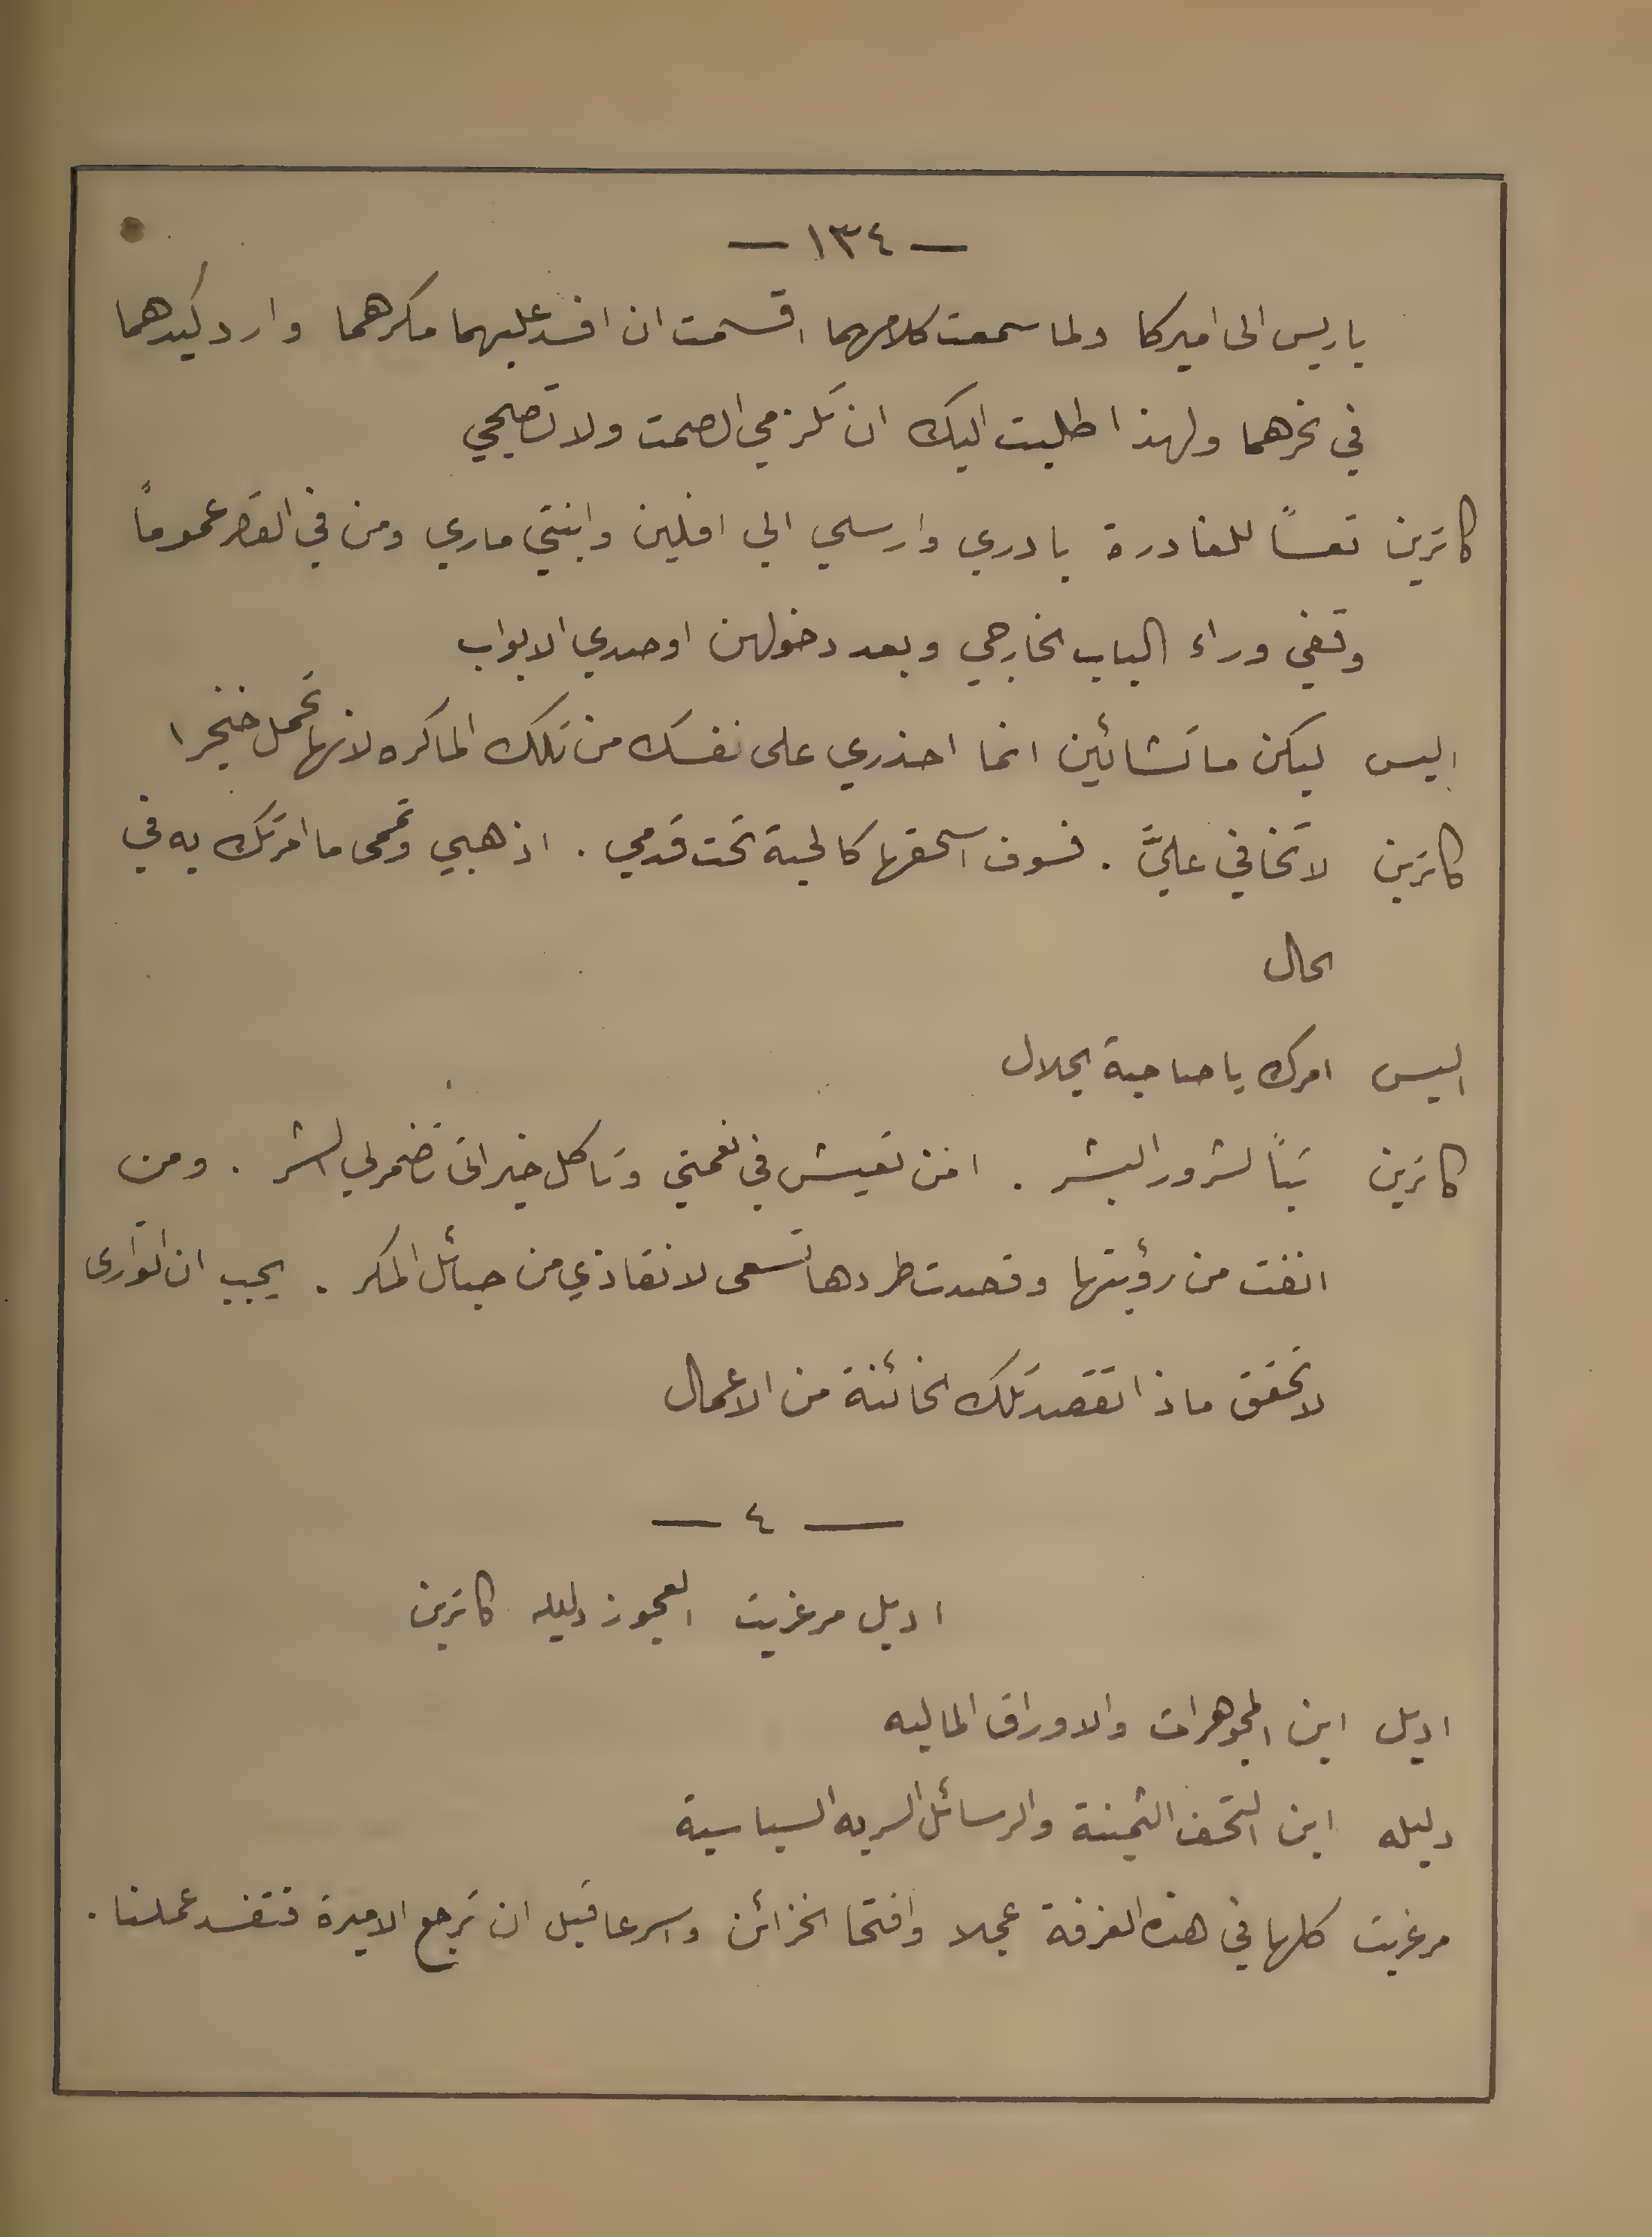 — ١٣٤ —
باريس الى اميركا ولما سمعت كلامهما اقسمت ان افسد عليهما مكرهما وارد كيدهما
في نحرهما ولهذا طلبت اليك ان تلزمي الصمت ولا تصيحي
كاترين تعساً للغادرة بادري وارسلي الي افلين وابنتي ماري ومن في القصر عموماً
وقفي وراء الباب الخارجي وبعد دخولهن اوصدي الابواب
اليس ليكن ما تشائين انما احذري على نفسك من تلك الماكره لانها تحمل خنجرا
كاترين لا تخافي عليَّ . فسوف اسحقها كالحية تحت قدمي . اذهبي وتممى ما امرتك به في
الحال
اليس امرك يا صاحبة الجلال
كاترين تباً لشرور البشر . افمن تعيش في نعمتي وتاكل خيراتى تضمر لي الشر . ومن
انفت من رؤيتها وقصدت طردها تسعى لانقاذي من حبائل المكر . يجب ان اتوارى
لاتحقق ماذا تقصد تلك الخائنة من الاعمال
— ٤ —
اديل مرغريت العجوز دليله كاترين
اديل اين المجوهرات والاوراق الماليه
دليله اين التحف الثمينة والرسائل السريه السياسية
مرغريت كلها في هذه الغرفة عجلا وافتحا الخزائن واسرعا قبل ان ترجع الاميرة فتفسد عملنا .